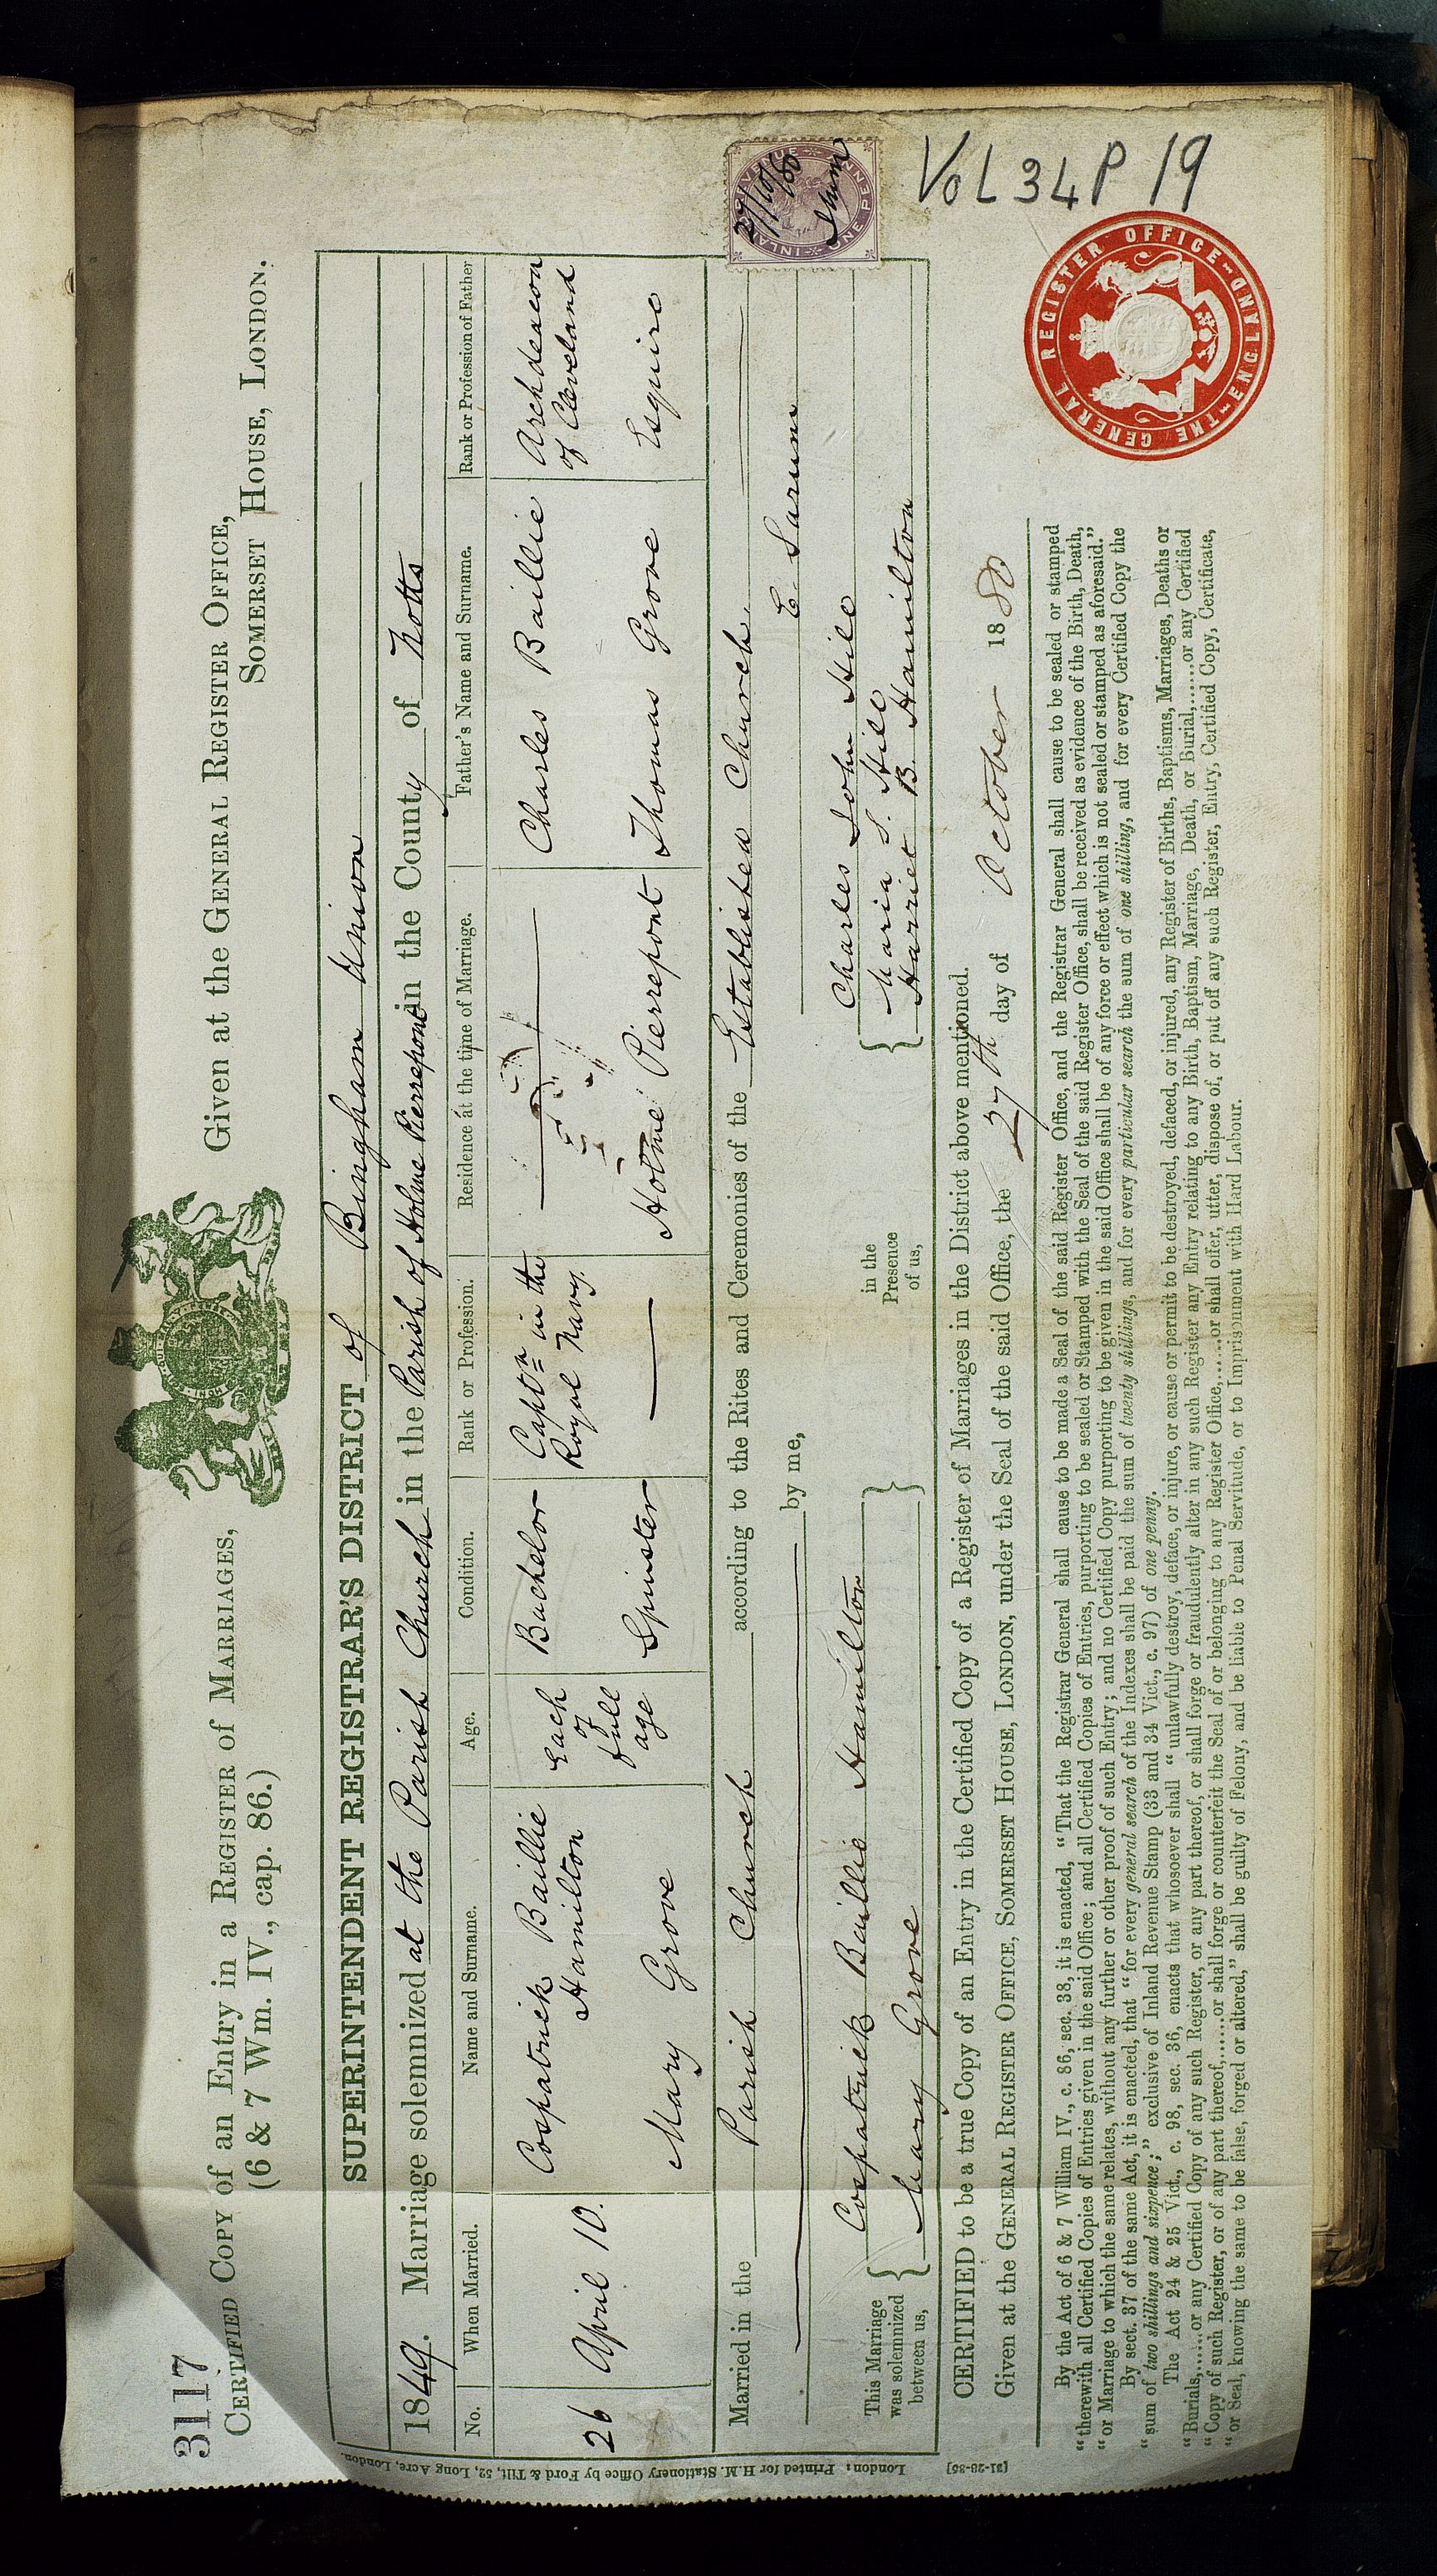 3117
CERTIFIED COPY of an Entry in a REGISTER of MARRIAGES,
(6 & 7 Wm. IV., cap. 86.)
Given at the GENERAL REGISTER OFFICE,
SOMERSET HOUSE, LONDON.
SUPERINTENDENT REGISTRAR'S DISTRICT of Bingham Union
1849. Marriage solemnized at the Parish Church in the Parish of Holme Pierrepont in the County of Notts
No. When Married. Name and Surname. Age. Condition. Rank or Profession. Residence at the time of Marriage. Father's Name and Surname. Rank or Profession of Father
26 April 10. Cospatrick Baillie Hamilton Each of full age Bachelor Captn in the Royal Navy. Charles Baillie Archdeacon of Cleveland
Mary Grove Spinster — Holme Pierrepont Thomas Grove Esquire
Married in the Parish Church according to the Rites and Ceremonies of the Established Church.
by me, E Sarum
This Marriage
was solemnized
between us,
Cospatrick Baillie Hamilton
Mary Grove
in the
Presence
of us,
Charles John Hill
Maria S. Hill
Harriet B. Hamilton
INLAND REVENUE ONE PENNY
27/10/80
VOL 34 P 19
CERTIFIED to be a true Copy of an Entry in the Certified Copy of a Register of Marriages in the District above mentioned.
Given at the GENERAL REGISTER OFFICE, SOMERSET HOUSE, LONDON, under the Seal of the said Office, the 27th day of October 1880
THE GENERAL REGISTER OFFICE-ENGLAND
By the Act of 6 & 7 William IV., c. 86, sec. 38, it is enacted, "That the Registrar General shall cause to be made a Seal of the said Register Office, and the Registrar General shall cause to be sealed or stamped
"therewith all Certified Copies of Entries given in the said Office; and all Certified Copies of Entries, purporting to be sealed or Stamped with the Seal of the said Register Office, shall be received as evidence of the Birth, Death,
"or Marriage to which the same relates, without any further or other proof of such Entry; and no Certified Copy purporting to be given in the said Office shall be of any force or effect which is not sealed or stamped as aforesaid."
By sect. 37 of the same Act, it is enacted, that "for every general search of the Indexes shall be paid the sum of twenty shillings, and for every particular search the sum of one shilling, and for every Certified Copy the
"sum of two shillings and sixpence;" exclusive of Inland Revenue Stamp (33 and 34 Vict., c. 97) of one penny.
The Act 24 & 25 Vict., c. 98, sec. 36, enacts that whosoever shall "unlawfully destroy, deface, or injure, or cause or permit to be destroyed, defaced, or injured, any Register of Births, Baptisms, Marriages, Deaths or
"Burials,......or any Certified Copy of any such Register, or any part thereof, or shall forge or fraudulently alter in any such Register any Entry relating to any Birth, Baptism, Marriage, Death, or Burial,......or any Certified
"Copy of such Register, or of any part thereof,......or shall forge or counterfeit the Seal of or belonging to any Register Office,......or shall offer, utter, dispose of, or put off any such Register, Entry, Certified Copy, Certificate,
"or Seal, knowing the same to be false, forged or altered," shall be guilty of Felony, and be liable to Penal Servitude, or to Imprisonment with Hard Labour.
London: Printed for H.M. Stationery Office by Ford & Tilt, 52, Long Acre, London.